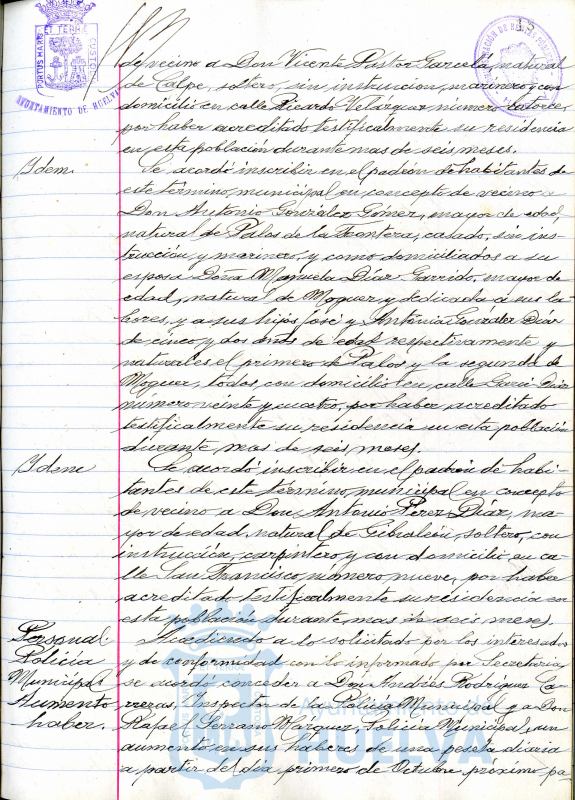 PORTUS MARIS ET TERRAE CUSTODIA
AYUNTAMIENTO DE HUELVA
de vecino a Don Vicente Pastor Garcela, natural
de Calpe, soltero, sin instruccion, marinero y con
domicilio en calle Ricardo Velazquez número catorce,
por haber acreditado testificalmente su residencia
en esta población durante mas de seis meses.
Idem.
Se acordó inscribir en el padrón de habitantes de
este término municipal en concepto de vecino a
Don Antonio González Gómez, mayor de edad,
natural de Palos de la Frontera, casado, sin ins-
trucción, y marinero, y como domiciliados a su
esposa Doña Manuela Diaz Garrido, mayor de
edad, natural de Moguer y dedicada a sus la-
bores, y a sus hijos José y Antonia González Diaz
de cinco y dos años de edad respectivamente y
naturales el primero de Palos y la segunda de
Moguer, todos con domicilio en calle Garci Diaz
número veinte y cuatro, por haber acreditado
testificalmente su residencia en esta población
durante mas de seis meses.
Idem
Se acordó inscribir en el padrón de habi-
tantes de este término municipal en concepto
de vecino a Don Antonio Pérez Diaz, ma-
yor de edad, natural de Gibraleón, soltero, con
instrucción, carpintero y con domicilio en ca-
lle San Francisco, número nueve, por haber
acreditado testificalmente su residencia en
esta población durante mas de seis meses.
Personal
Policía
Municipal
Aumento
haber.
Accediendo a lo solicitado por los interesados
y de conformidad con lo informado por Secretaria,
se acordó conceder a Don Andrés Rodríguez Ca-
rreras, Inspector de la Policía Municipal y a Don
Rafael Serrano Márquez, Policía Municipal, un
aumento en sus haberes de una peseta diaria
a partir del dia primero de Octubre próximo pa-
Ayuntamiento de
HUELVA